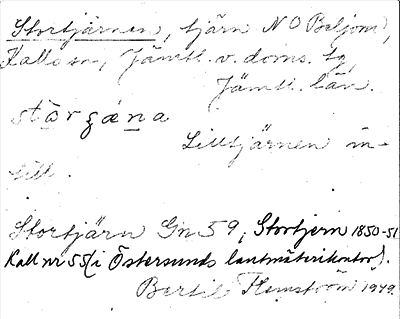 Stortjärnen, tjärn NO Beljom,
Kalls sn, Jämtl. v. doms. tg,
Jämtl. län.
stòrʒǽna
Lilltjärnen in-
till.
Stortjärn Gn 59, Stortjern 1850-51
Kall nr 55 (i Östersunds lantmäterikontor).
Bertil Flemström 1949.